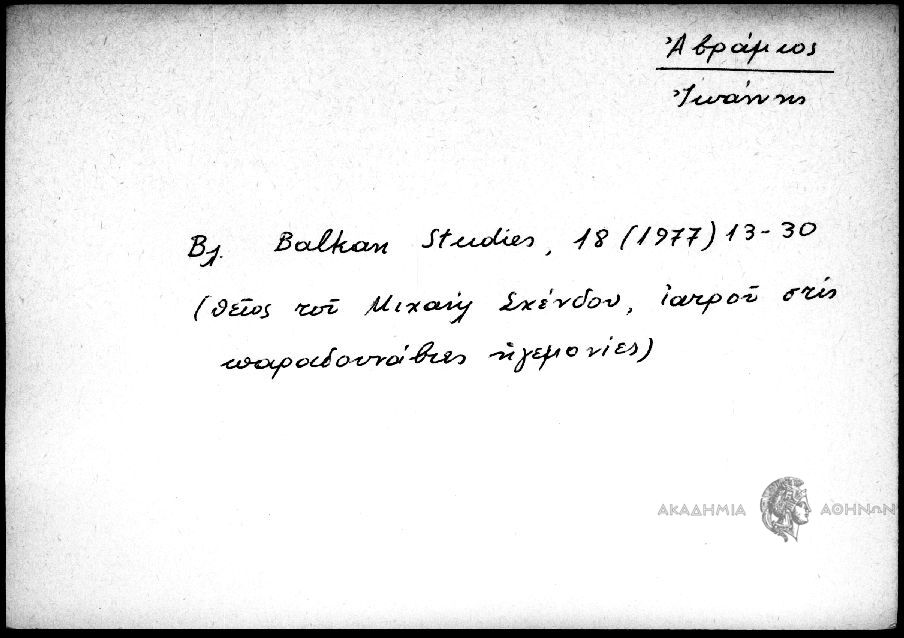 Ἀβράμιος
Ἰωάννης
Βλ. Balkan Studies, 18 (1977) 13-30
(θεῖος τοῦ Μιχαὴλ Σκένδου, ἰατροῦ στὶς
παραδουνάβιες ἡγεμονίες)
ΑΚΑΔΗΜΙΑ ΑΘΗΝΩΝ